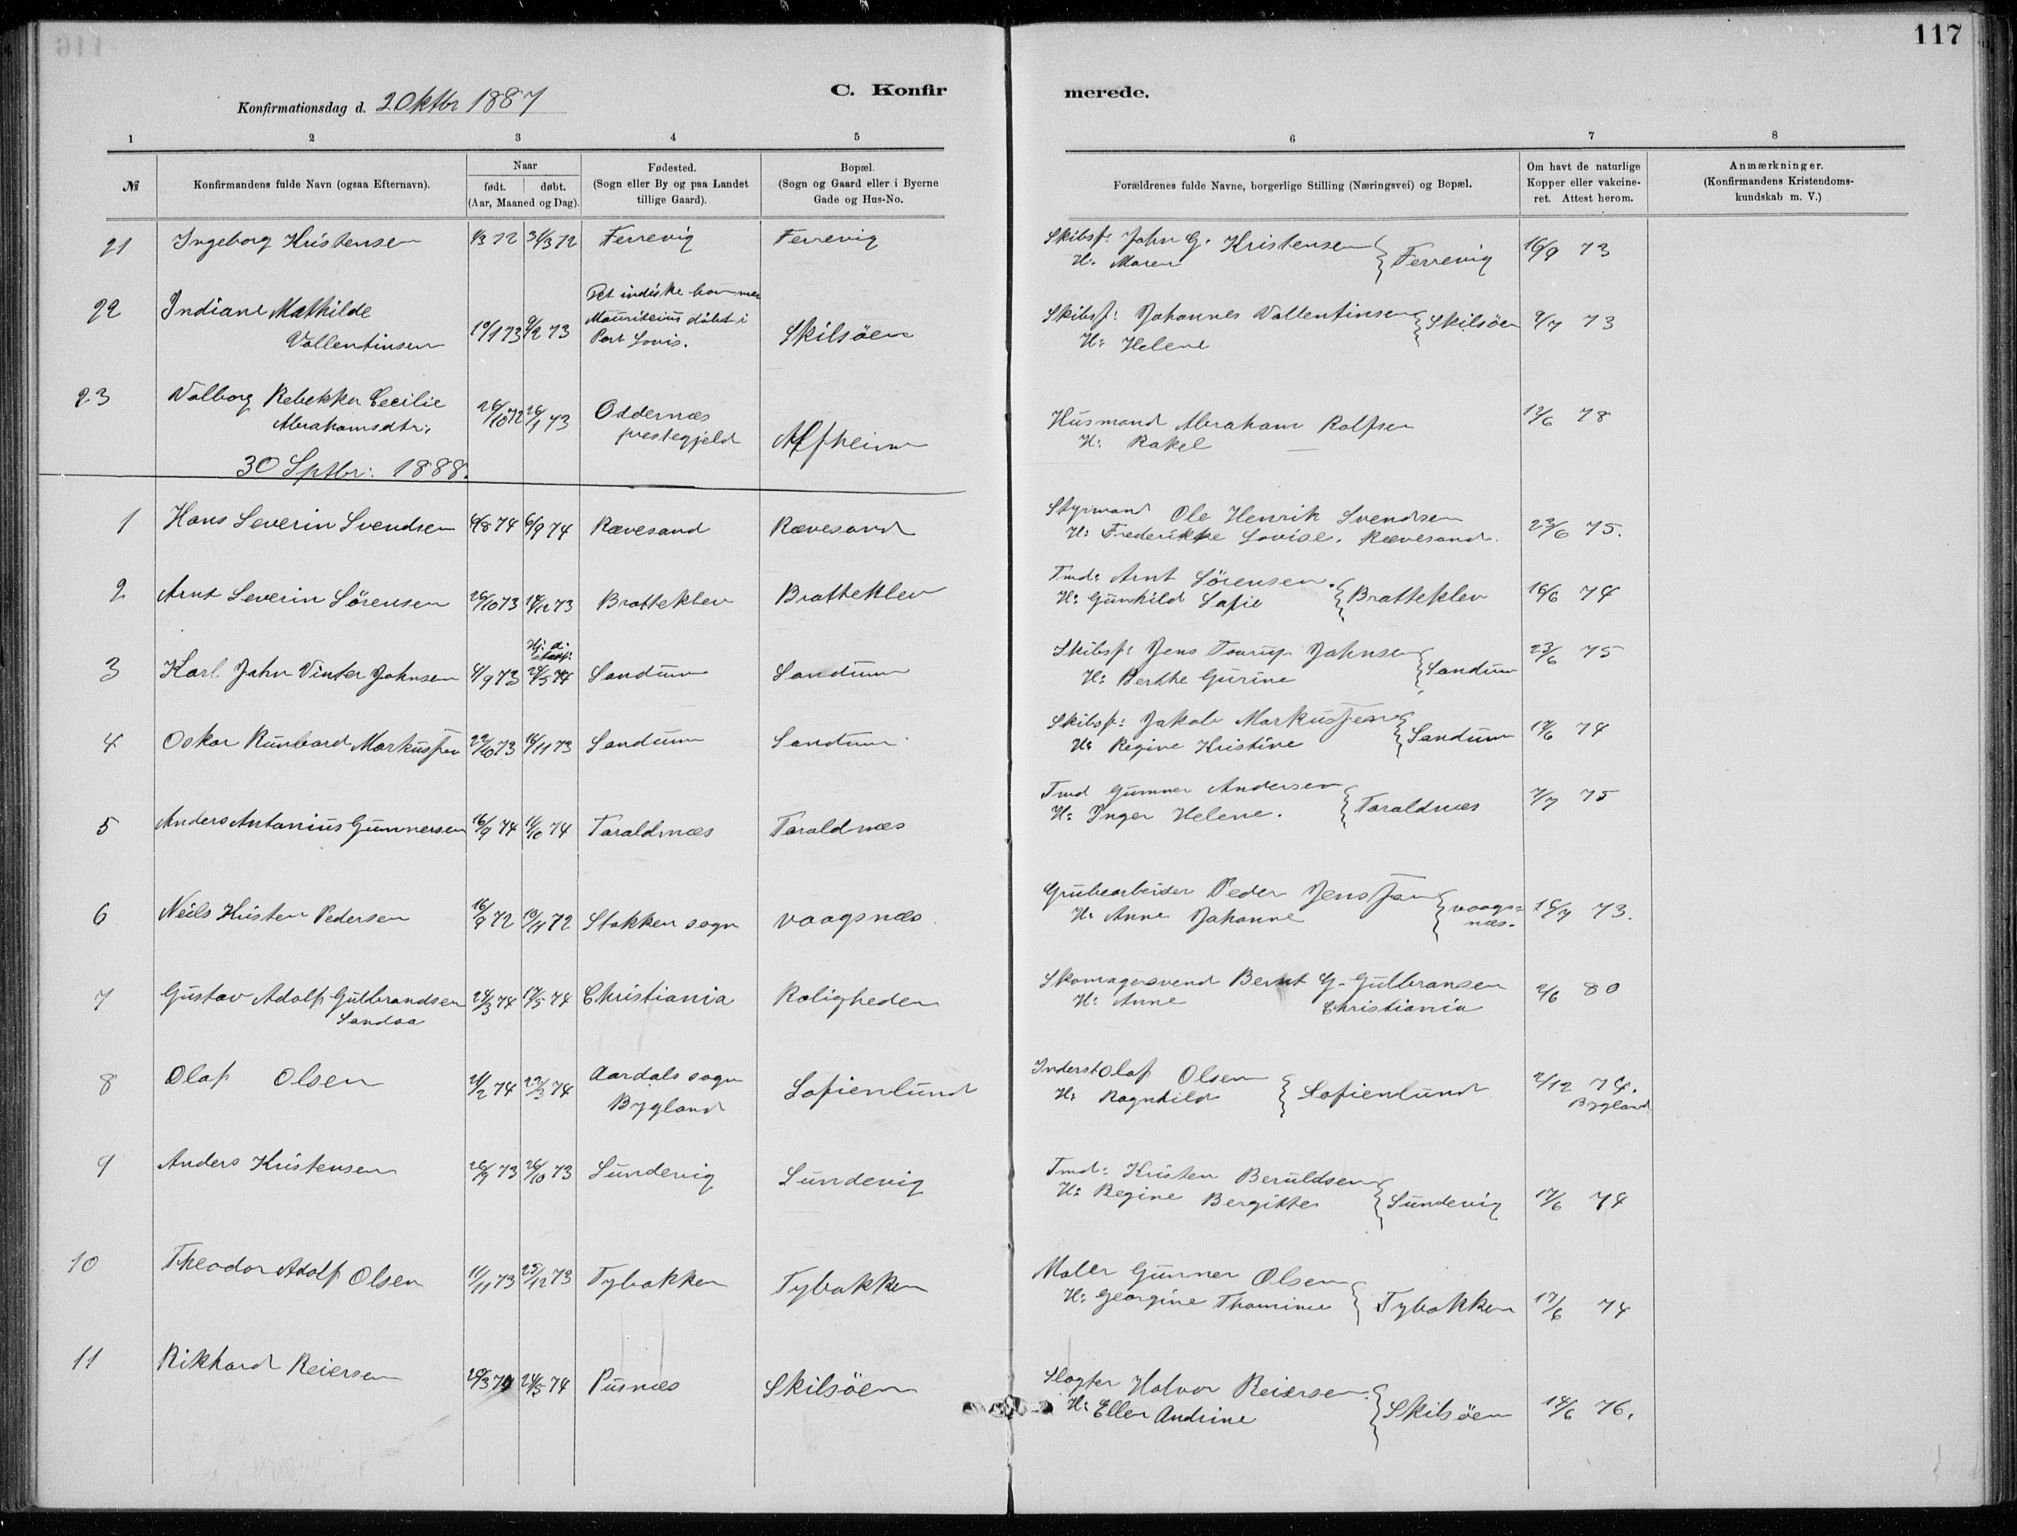 117
Konfirmationsdag d. 2 Oktbr 1887
C. Konfir
merede.
1 2 3 4 5 6 7 8
№
Konfirmandens fulde Navn (ogsaa Efternavn).
Naar
født. døbt.
(Aar, Maaned og Dag).
Fødested.
(Sogn eller By og paa Landet
tillige Gaard).
Bopæl.
(Sogn og Gaard eller i Byerne
Gade og Hus-No.
Forældrenes fulde Navne, borgerlige Stilling (Næringsvei) og Bopæl.
Om havt de naturlige
Kopper eller vakcine-
ret. Attest herom.
Anmærkninger.
(Konfirmandens Kristendoms-
kundskab m. V.)
21 Ingeborg Kristensen 1/3 72 31/3 72 Ferrevig Ferrevig Skibsf: John G. Kristensen Ferrevig 16/9 73
H. Maren
22 Indiane Mathilde
Vallentinsen 73 73
Det indiske hav
Mauriteius döbt i
Port Lovis.
Skilsöen
Skibsf: Johannes Vallentinsen Skilsöen 9/7 73
H: Helene
23 Valborg Rebekka Cecilie
Abrahamsdtr. 26/10 72 26/1 73
Oddernæs
prestegjeld
Alfheim
Husmand Abraham Rolfsen 12/6 78
H: Rakel
30 Septbr: 1888.
1 Hans Severin Svendsen 6/8 74 6/9 74 Rævesand Rævesand
Styrmand Ole Henrik Svendsen 23/6 75.
H: Frederikke Lovise. Rævesand.
2 Arnt Severin Sörensen 26/10 73 73 Bratteklev Bratteklev
Tmd: Arnt Sörensen. Bratteklev 16/6 74
H: Gunhild Sofie
3 Karl John Vinter Johnsen 4/9 73 Hj. d. 24/5 74 Sandum Sandum
Skibsf: Jens Tourup Johnsen Sandum 23/6 75
H: Berthe Gurine
4 Oskar Runhard Markussen 22/10 73 16/11 73 Sandum Sandum
Skibsf: Jakob Markussen Sandum 74
H: Regine Kristine
5 Anders Antonius Gunnersen 16/9 74 74 Taraldnæs Taraldnæs
Tmd Gunner Andersen Taraldnæs 7/7 75
H: Inger Helene.
6 Neils Kristen Pedersen 16/9 72 72 Stokken sogn Vaagsnæs
Grubearbeider Peder Jenssen vaags=
næs. 73.
H: Anne Johanne
7 Gustav Adolf Gulbrandsen
Sandaa 24/3 74 17/5 74 Christiania Roligheden
Skomagersvend Bernt G. Gulbransen 2/6 80
H: Anne Christiania
8 Olaf Olsen 21/2 74 22/3 74
Aardals sogn
Bygland
Sofienlund
Inderst Olaf Olsen Sofienlund 2/12 74.
Bygland
H: Ragnhild
9 Anders Kristensen 26/9 73 26/10 73 Sundevig Sundevig
Tmd: Kristen Beruldsen Sundevig 17/6 74
H: Regine Bergitte
10 Theodor Adolf Olsen 11/11 73 25/12 73 Tybakken Tybakken
Maler Gunner Olsen Tybakken 17/6 74
H: Georgine Thomine
11 Rikhard Reiersen 74 24/5 74 Pusnæs Skilsöen
Slagter Halvor Reiersen Skilsöen 14/6 76.
H: Ellen Andrine